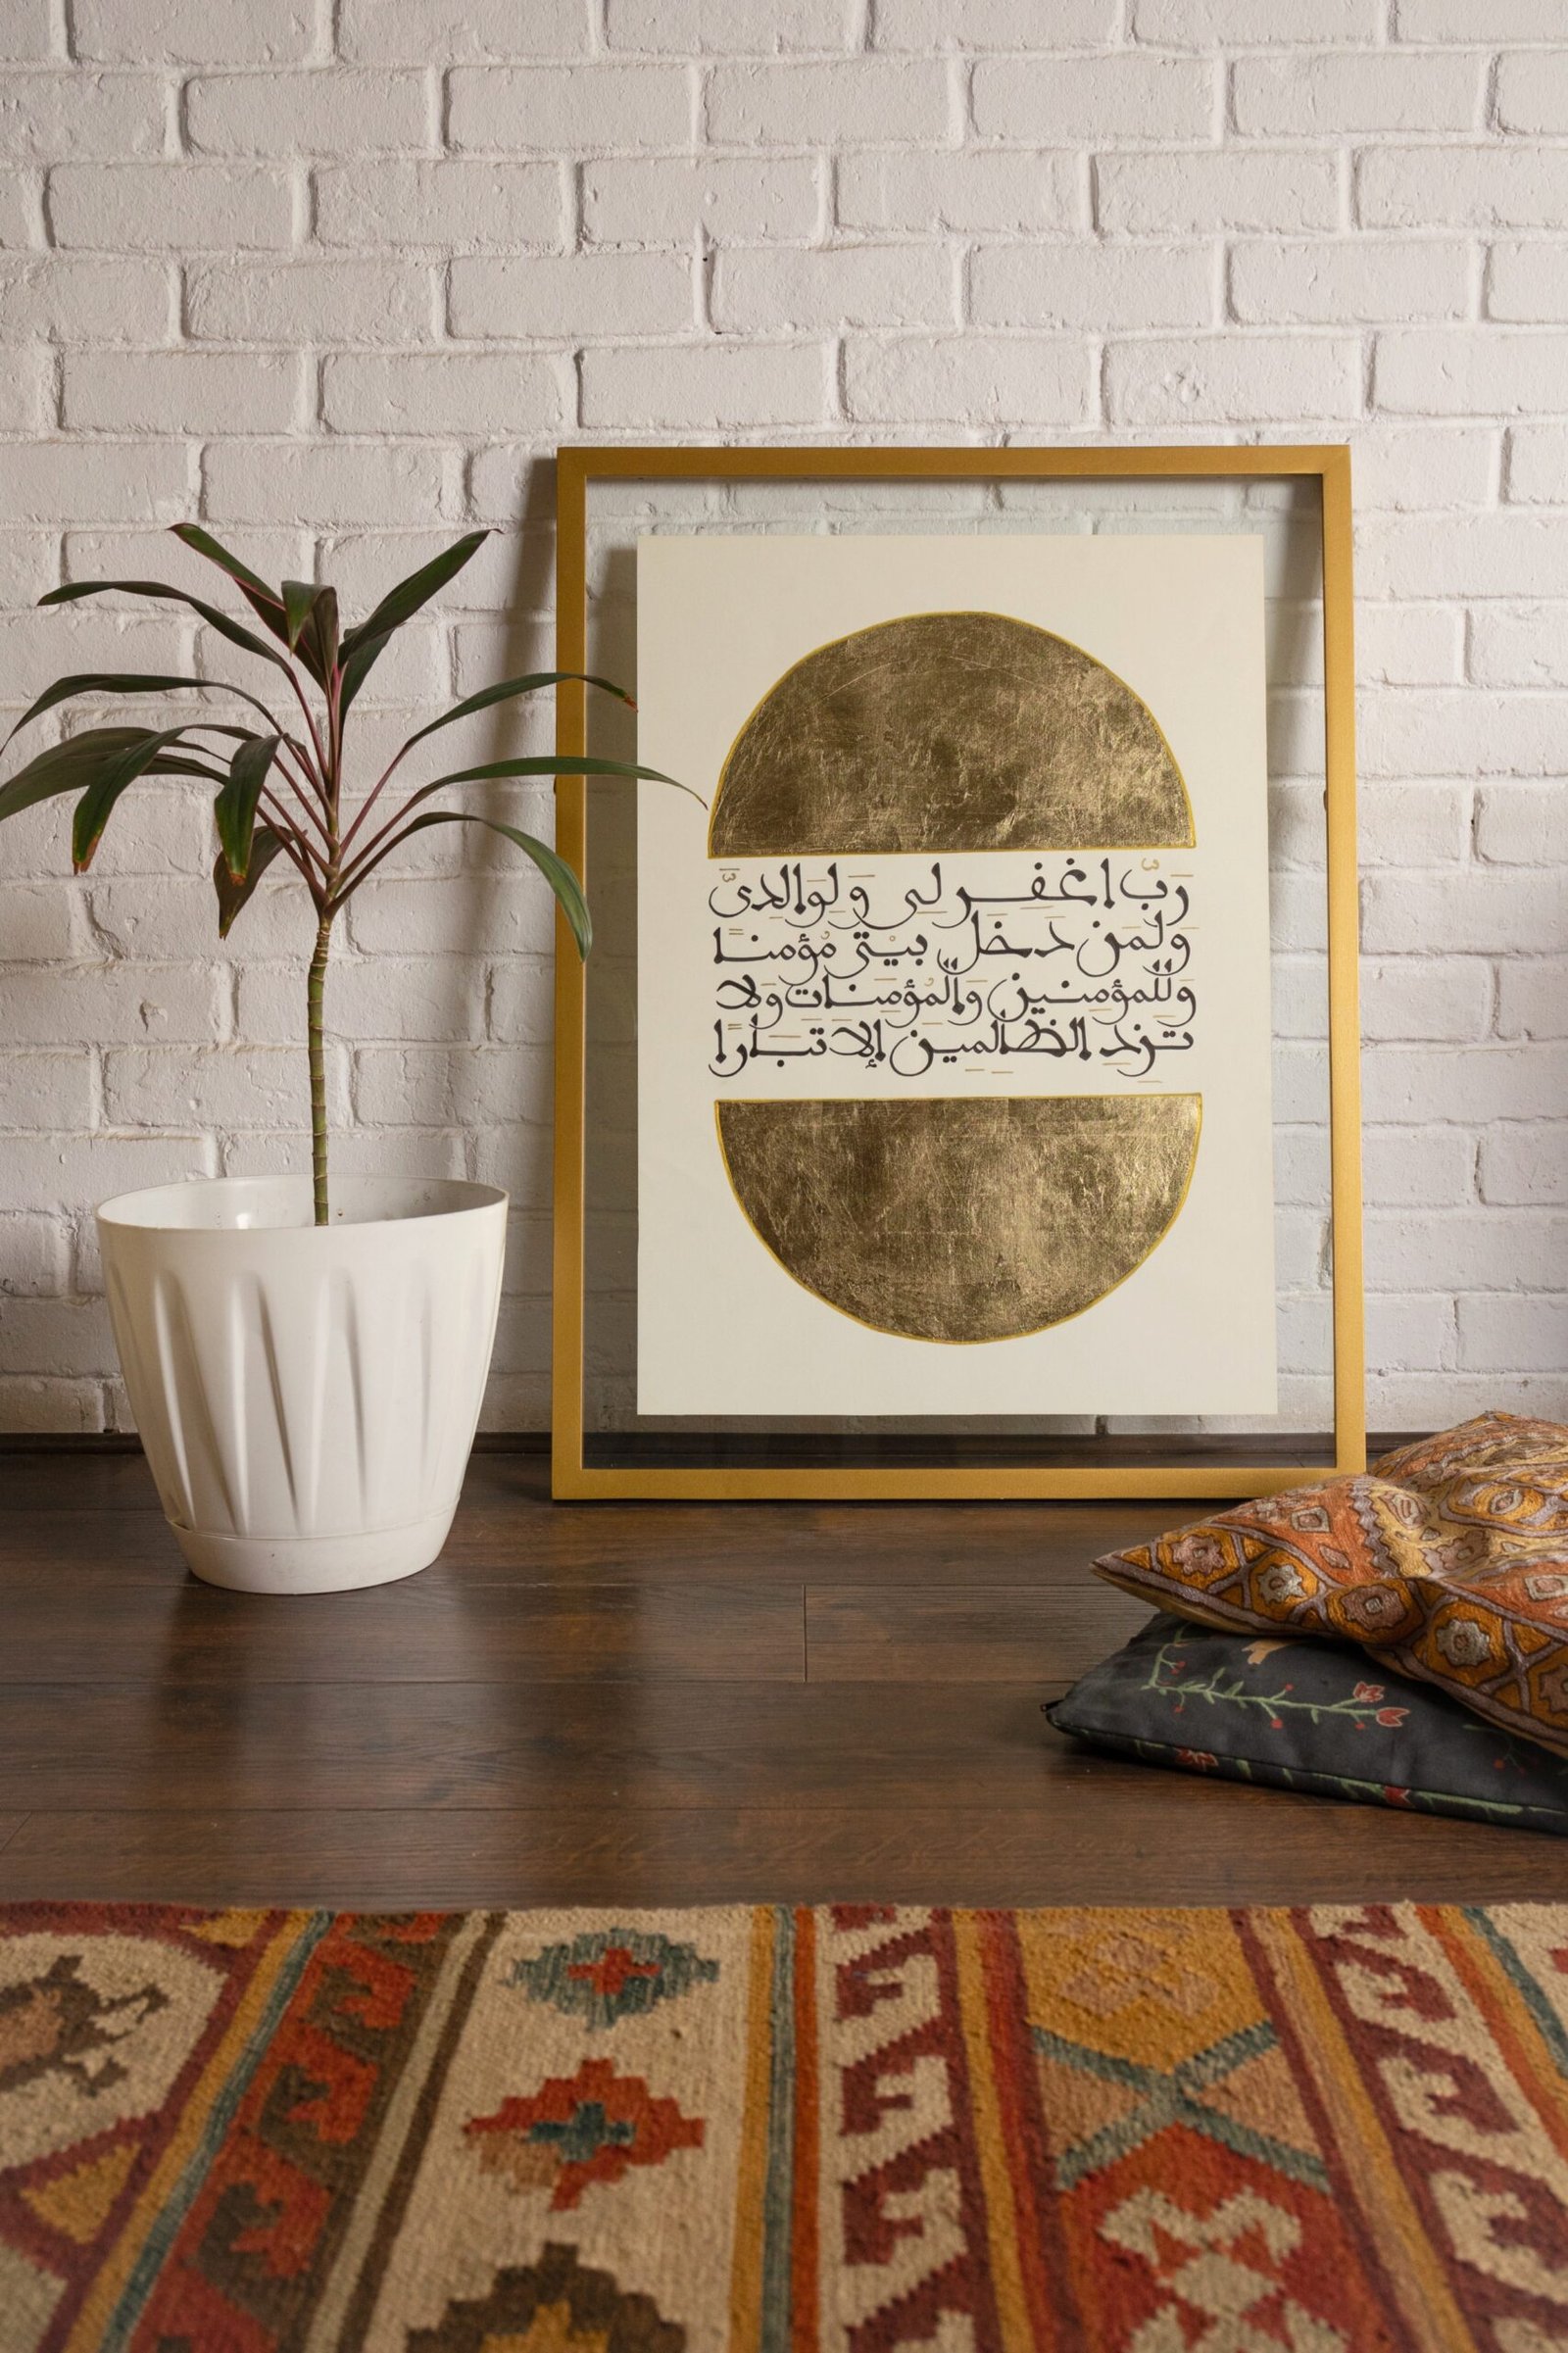 رَبّ اغفر لي وَلِوَالِدَيَّ
وَلِمَن دَخَلَ بيْتي مُؤمنًا
وَلِلمؤمِنين وَالمُؤمِنَات وَلَا
تَزِدِ الظالِمِينَ إلا تَبَارًا